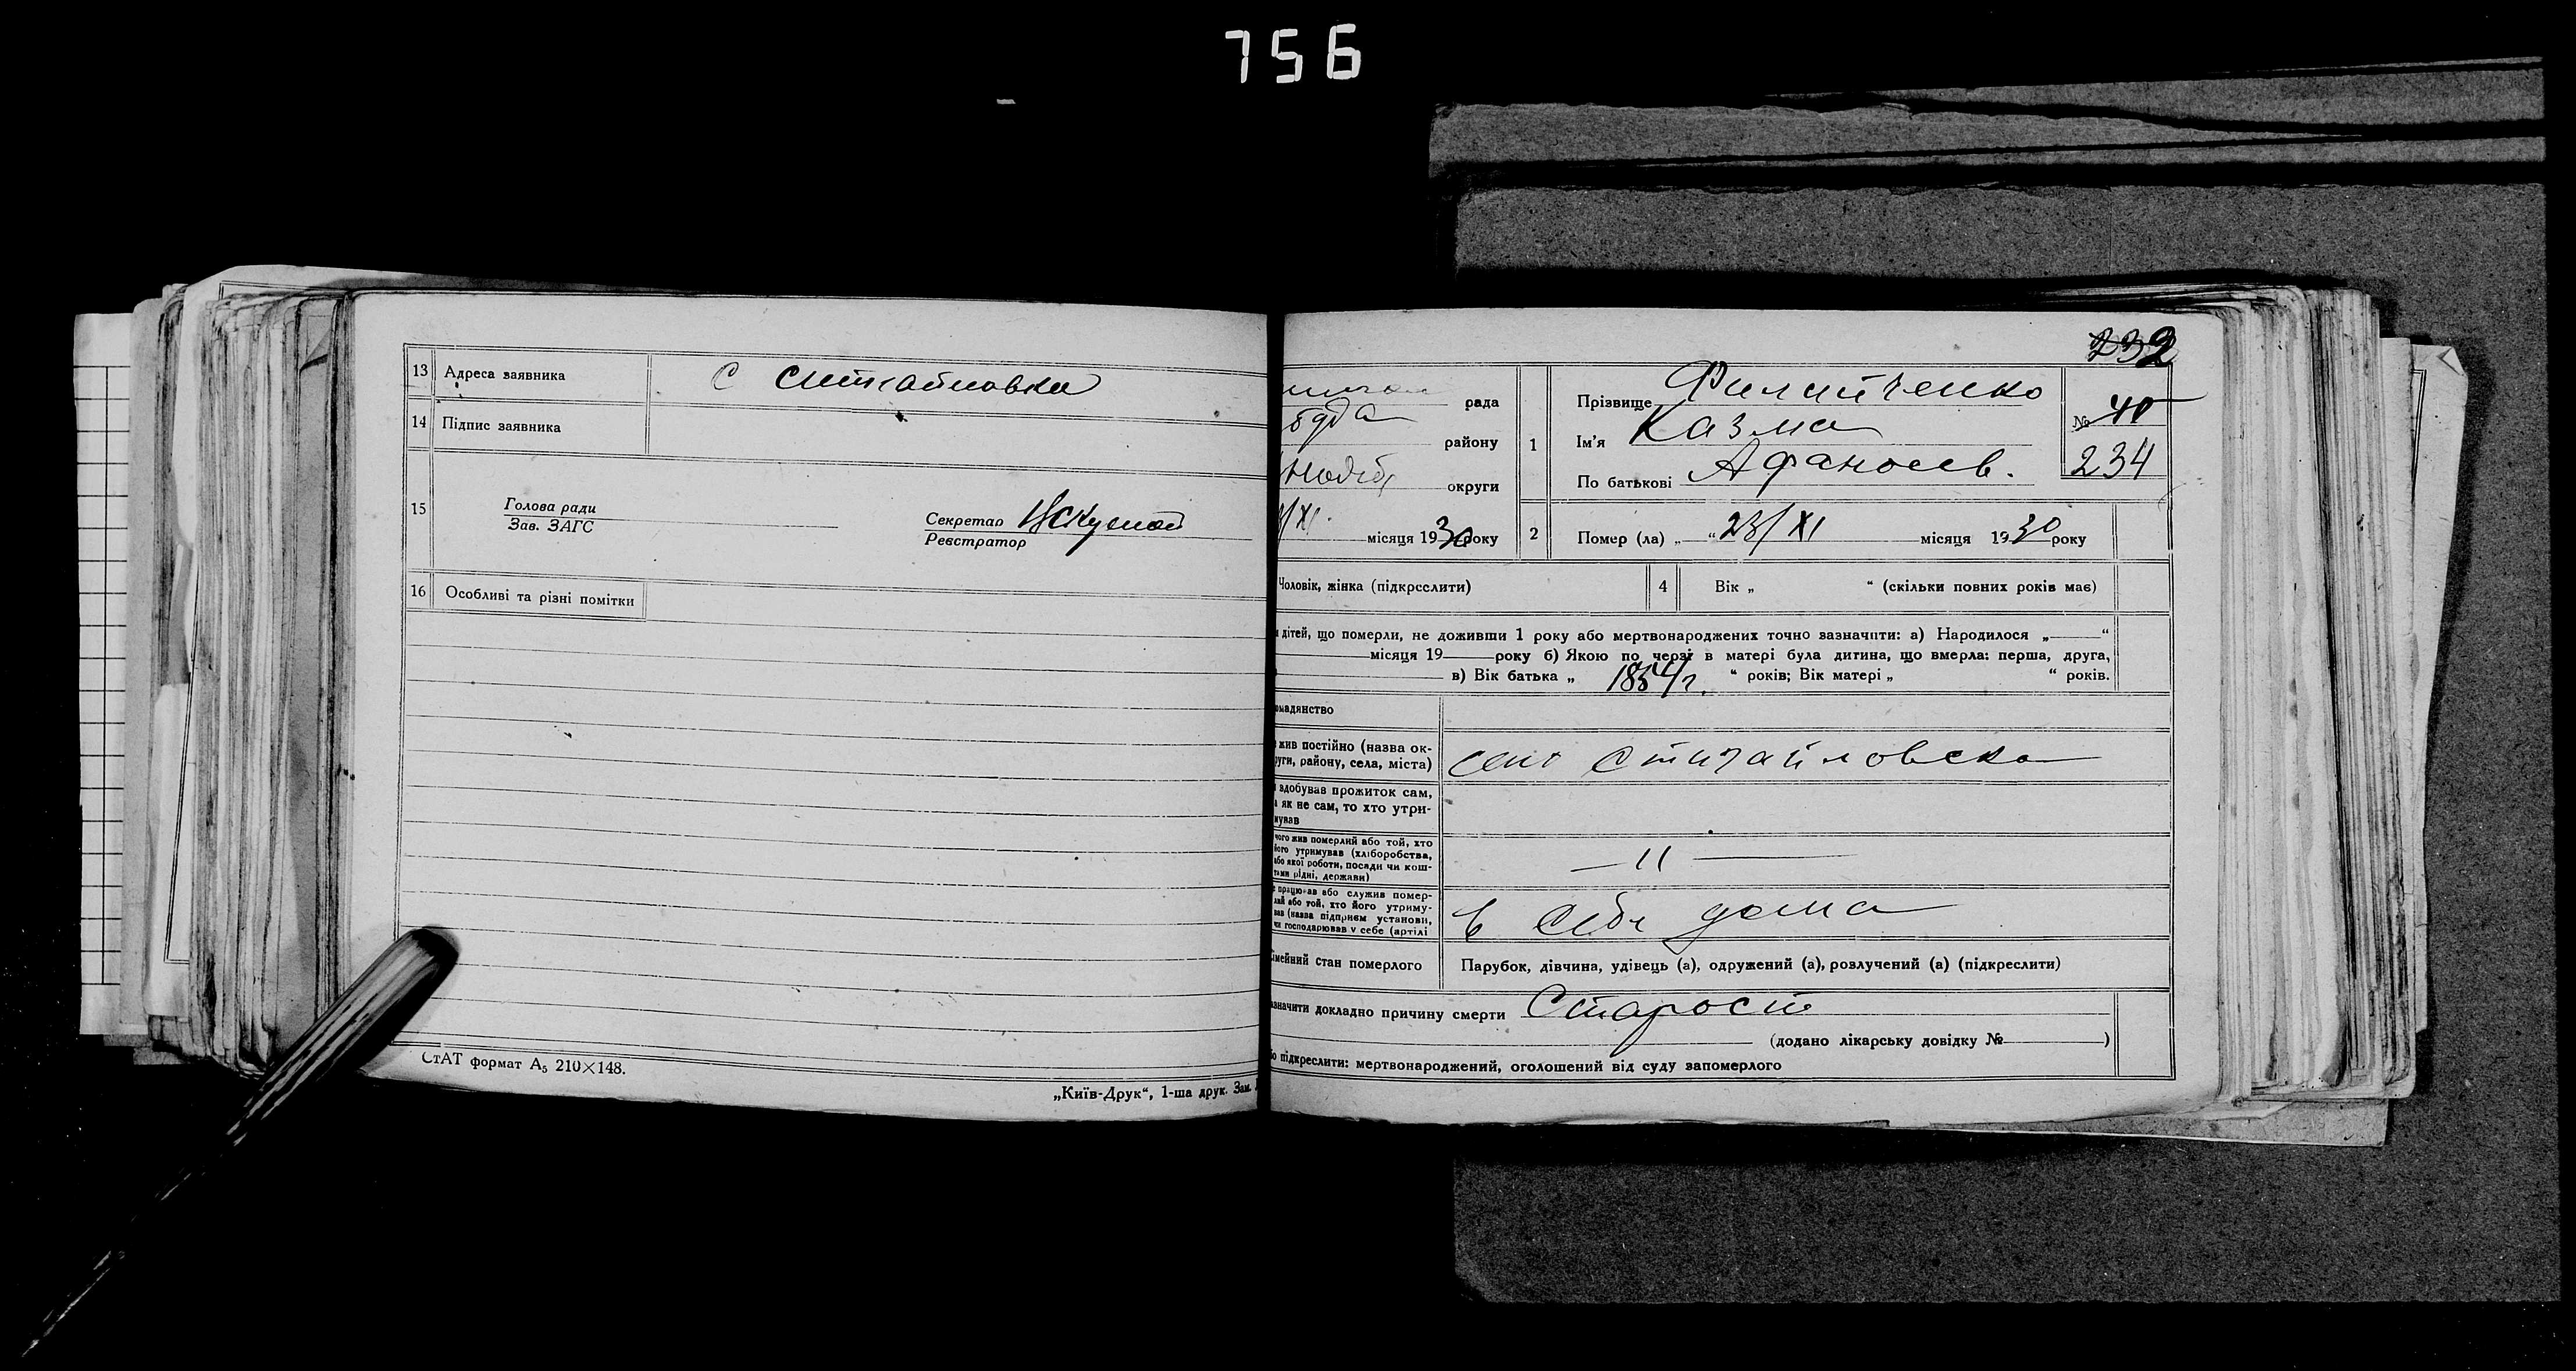 756
13 Адреса заявника С
14 Підпис заявника
15 Голова ради
Зав. ЗАГС
Секретар
Реєстратор
16 Особливі та різні помітки
СтАТ формат А5 210×148.
„Київ-Друк“, 1-ша друк. Зам.
232
рада
району
округи
/XI. місяця 1930 року
1 Прізвище Филипченко
Ім'я Казма
По батькові Афаносев.
№ 40
234
2 Помер (ла) „ “ 23/XI місяця 1930 року
Чоловік, жінка (підкреслити)
4 Вік „ “ (скільки повних років має)
дітей, що померли, не доживши 1 року або мертвонароджених точно зазначити: а) Народилося „ “
місяця 19 року б) Якою по черзі в матері була дитина, що вмерла: перша, друга,
в) Вік батька „ 1854 г. “ років; Вік матері „ “ років.
омадянство
жив постійно (назва ок-
руги, району, села, міста)
здобував прожиток сам,
як не сам, то хто утри-
мував
чого жив померлий або той, хто
його утримував (хліборобства,
або якої роботи, посади чи кош-
тами рідні, держави)
— 11 —
працював або служив помер-
лий або той, хто його утриму-
вав (назва підприєм установи,
чи господарював у себе (артілі
в себе дома
імейний стан померлого
Парубок, дівчина, удівець (а), одружений (а), розлучений (а) (підкреслити)
азначити докладно причину смерти Старость
(додано лікарську довідку № )
о підкреслити: мертвонароджений, оголошений від суду запомерлого